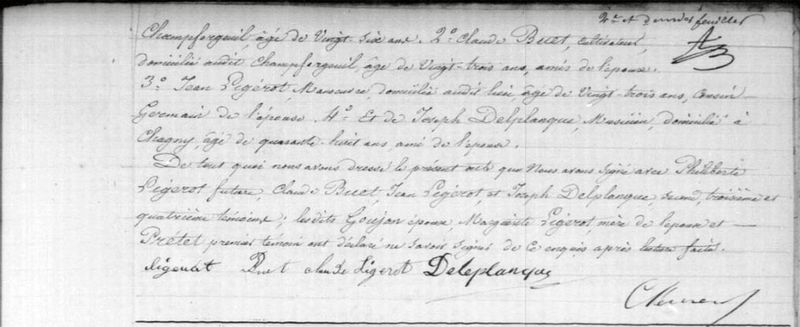 2e et dernier feuillet
Champforgeuil, âgé de Vingt six ans. 2o Claude Buet, cultivateur,
domicilié audit Champforgeuil, âgé de Vingt-trois ans, amis de l'époux.
3o Jean Ligérot, Manoeuvre domicilié audit lieu, âgé de Vingt-trois ans, Cousin
Germain de l'épouse. 4o Et de Joseph Delplanque, Musicien, domicilié à
Chagny, âgé de quarante huit ans, ami de l'époux.
De tout quoi nous avons dressé le présent acte que Nous avons Signé avec Philiberte
Ligerot future, Claude Buet, Jean Ligérot, et Joseph Delplanque second, troisième et
quatrième témoins; les dits Goujon époux, Marguerite Ligerot mère de l'épouse et
Prétet premier témoin ont déclaré ne Savoir Signer de Ce enquis après lecture faite.
Ligerot Buet claude Ligerot Deleplanque